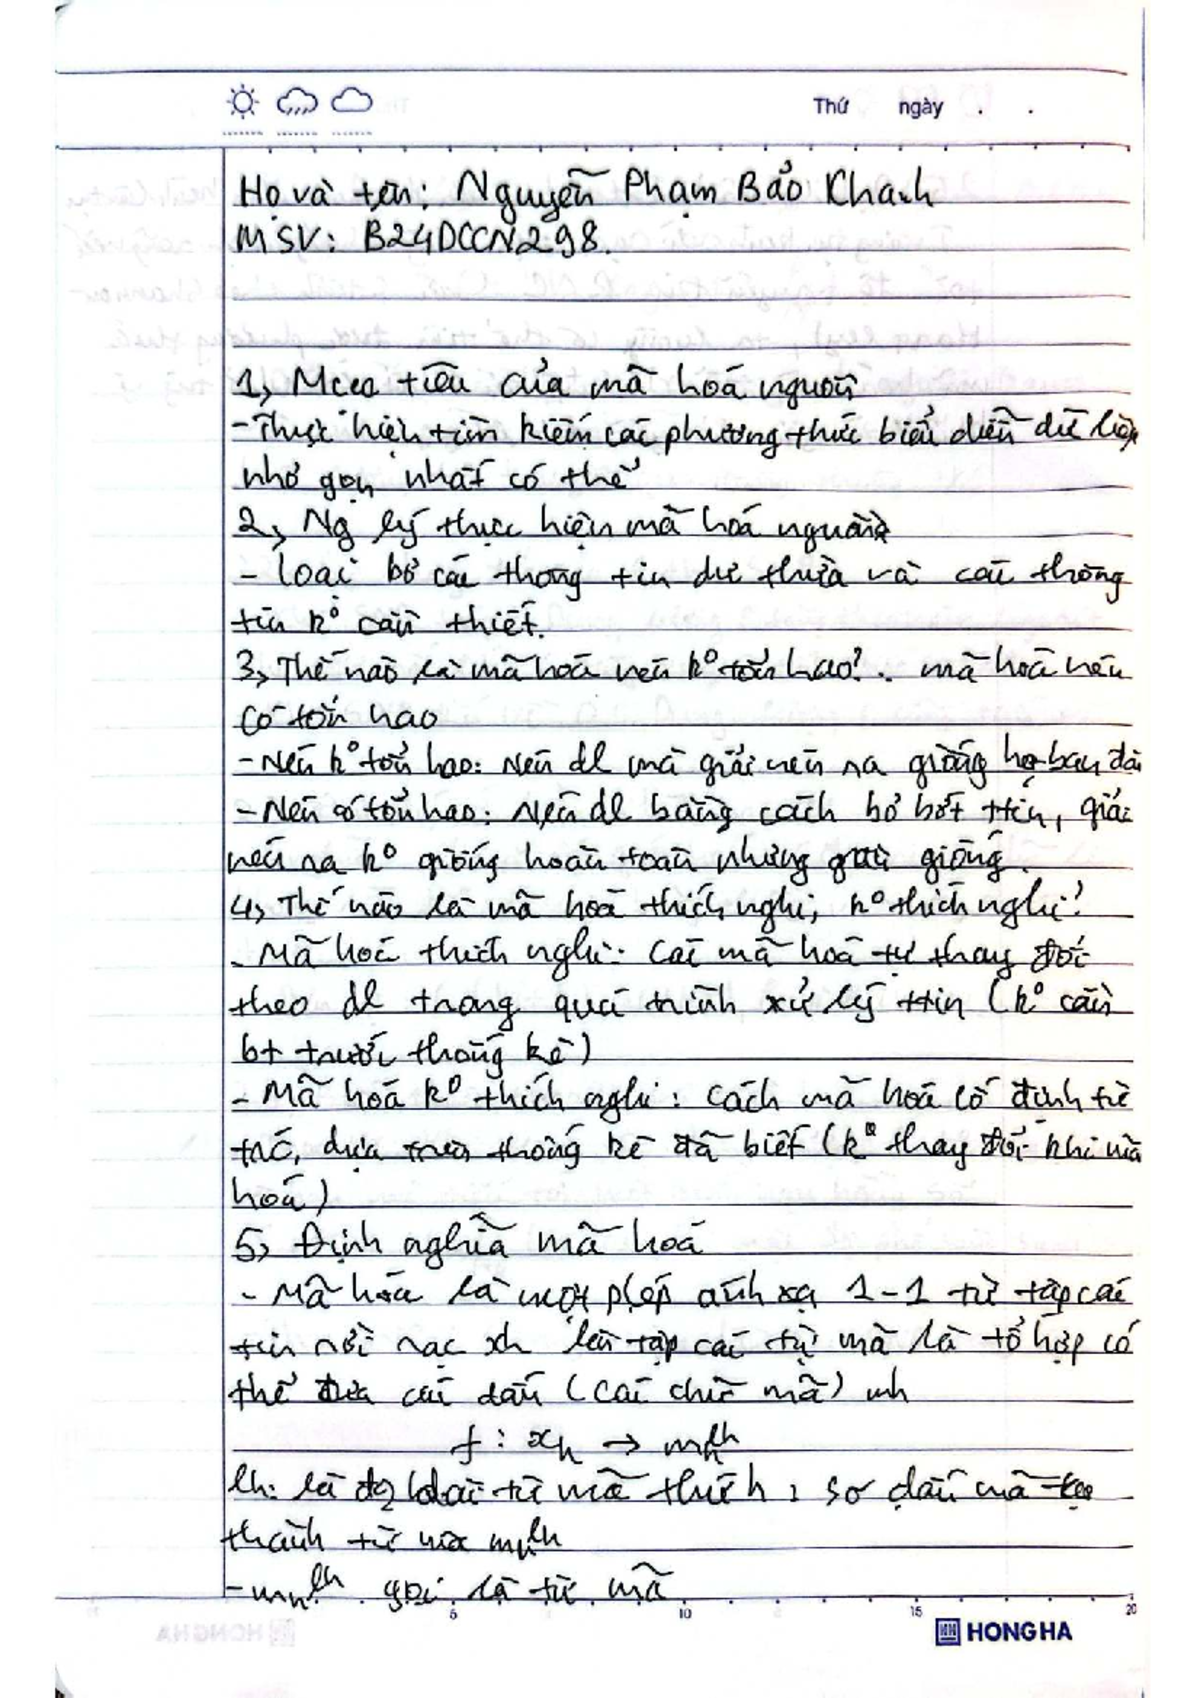 Thứ ngày . .
Họ và tên: Nguyễn Phạm Bảo Khanh
MSV: B24DCCN298.
1, Mục tiêu của mã hoá nguồn
- Thực hiện tìm kiếm các phương thức biểu diễn dữ liệu
nhỏ gọn nhất có thể
2, Ng lý thực hiện mã hoá nguồn
- loại bỏ các thông tin dư thừa và các thông
tin k° cần thiết.
3, Thế nào là mã hoá nén k° tổn hao? mã hoá nén
có tổn hao
- Nén k° tổn hao: Nén dl mà giải nén ra giống ban đầ
- Nén có tổn hao: Nén dl bằng cách bỏ bớt ttin, giải
nén ra k° giống hoàn toàn nhưng gần giống.
4, Thế nào là mã hoá thích nghi, k° thích nghi?
- Mã hoá thích nghi: Cái mã hoá tự thay đổi
theo dl trong quá trình xử lý ttin (k° cần
bt trước thống kê)
- Mã hoá k° thích nghi: Cách mã hoá cố định từ
trc, dựa trên thống kê đã biết (k° thay đổi khi mã
hoá)
5, Định nghĩa mã hoá
- Mã hóa là một phép ánh xạ 1-1 từ tập các
tin rời rạc xh lên tập các từ mã là tổ hợp có
thể của các dấu (các chữ mã) mh
f : xh → mh^lh
lh: là độ dài từ mã thứ h, số dấu mã tạo
thành từ mã mh^lh
- mh^lh gọi là từ mã
5 10 15 20
HONG HA